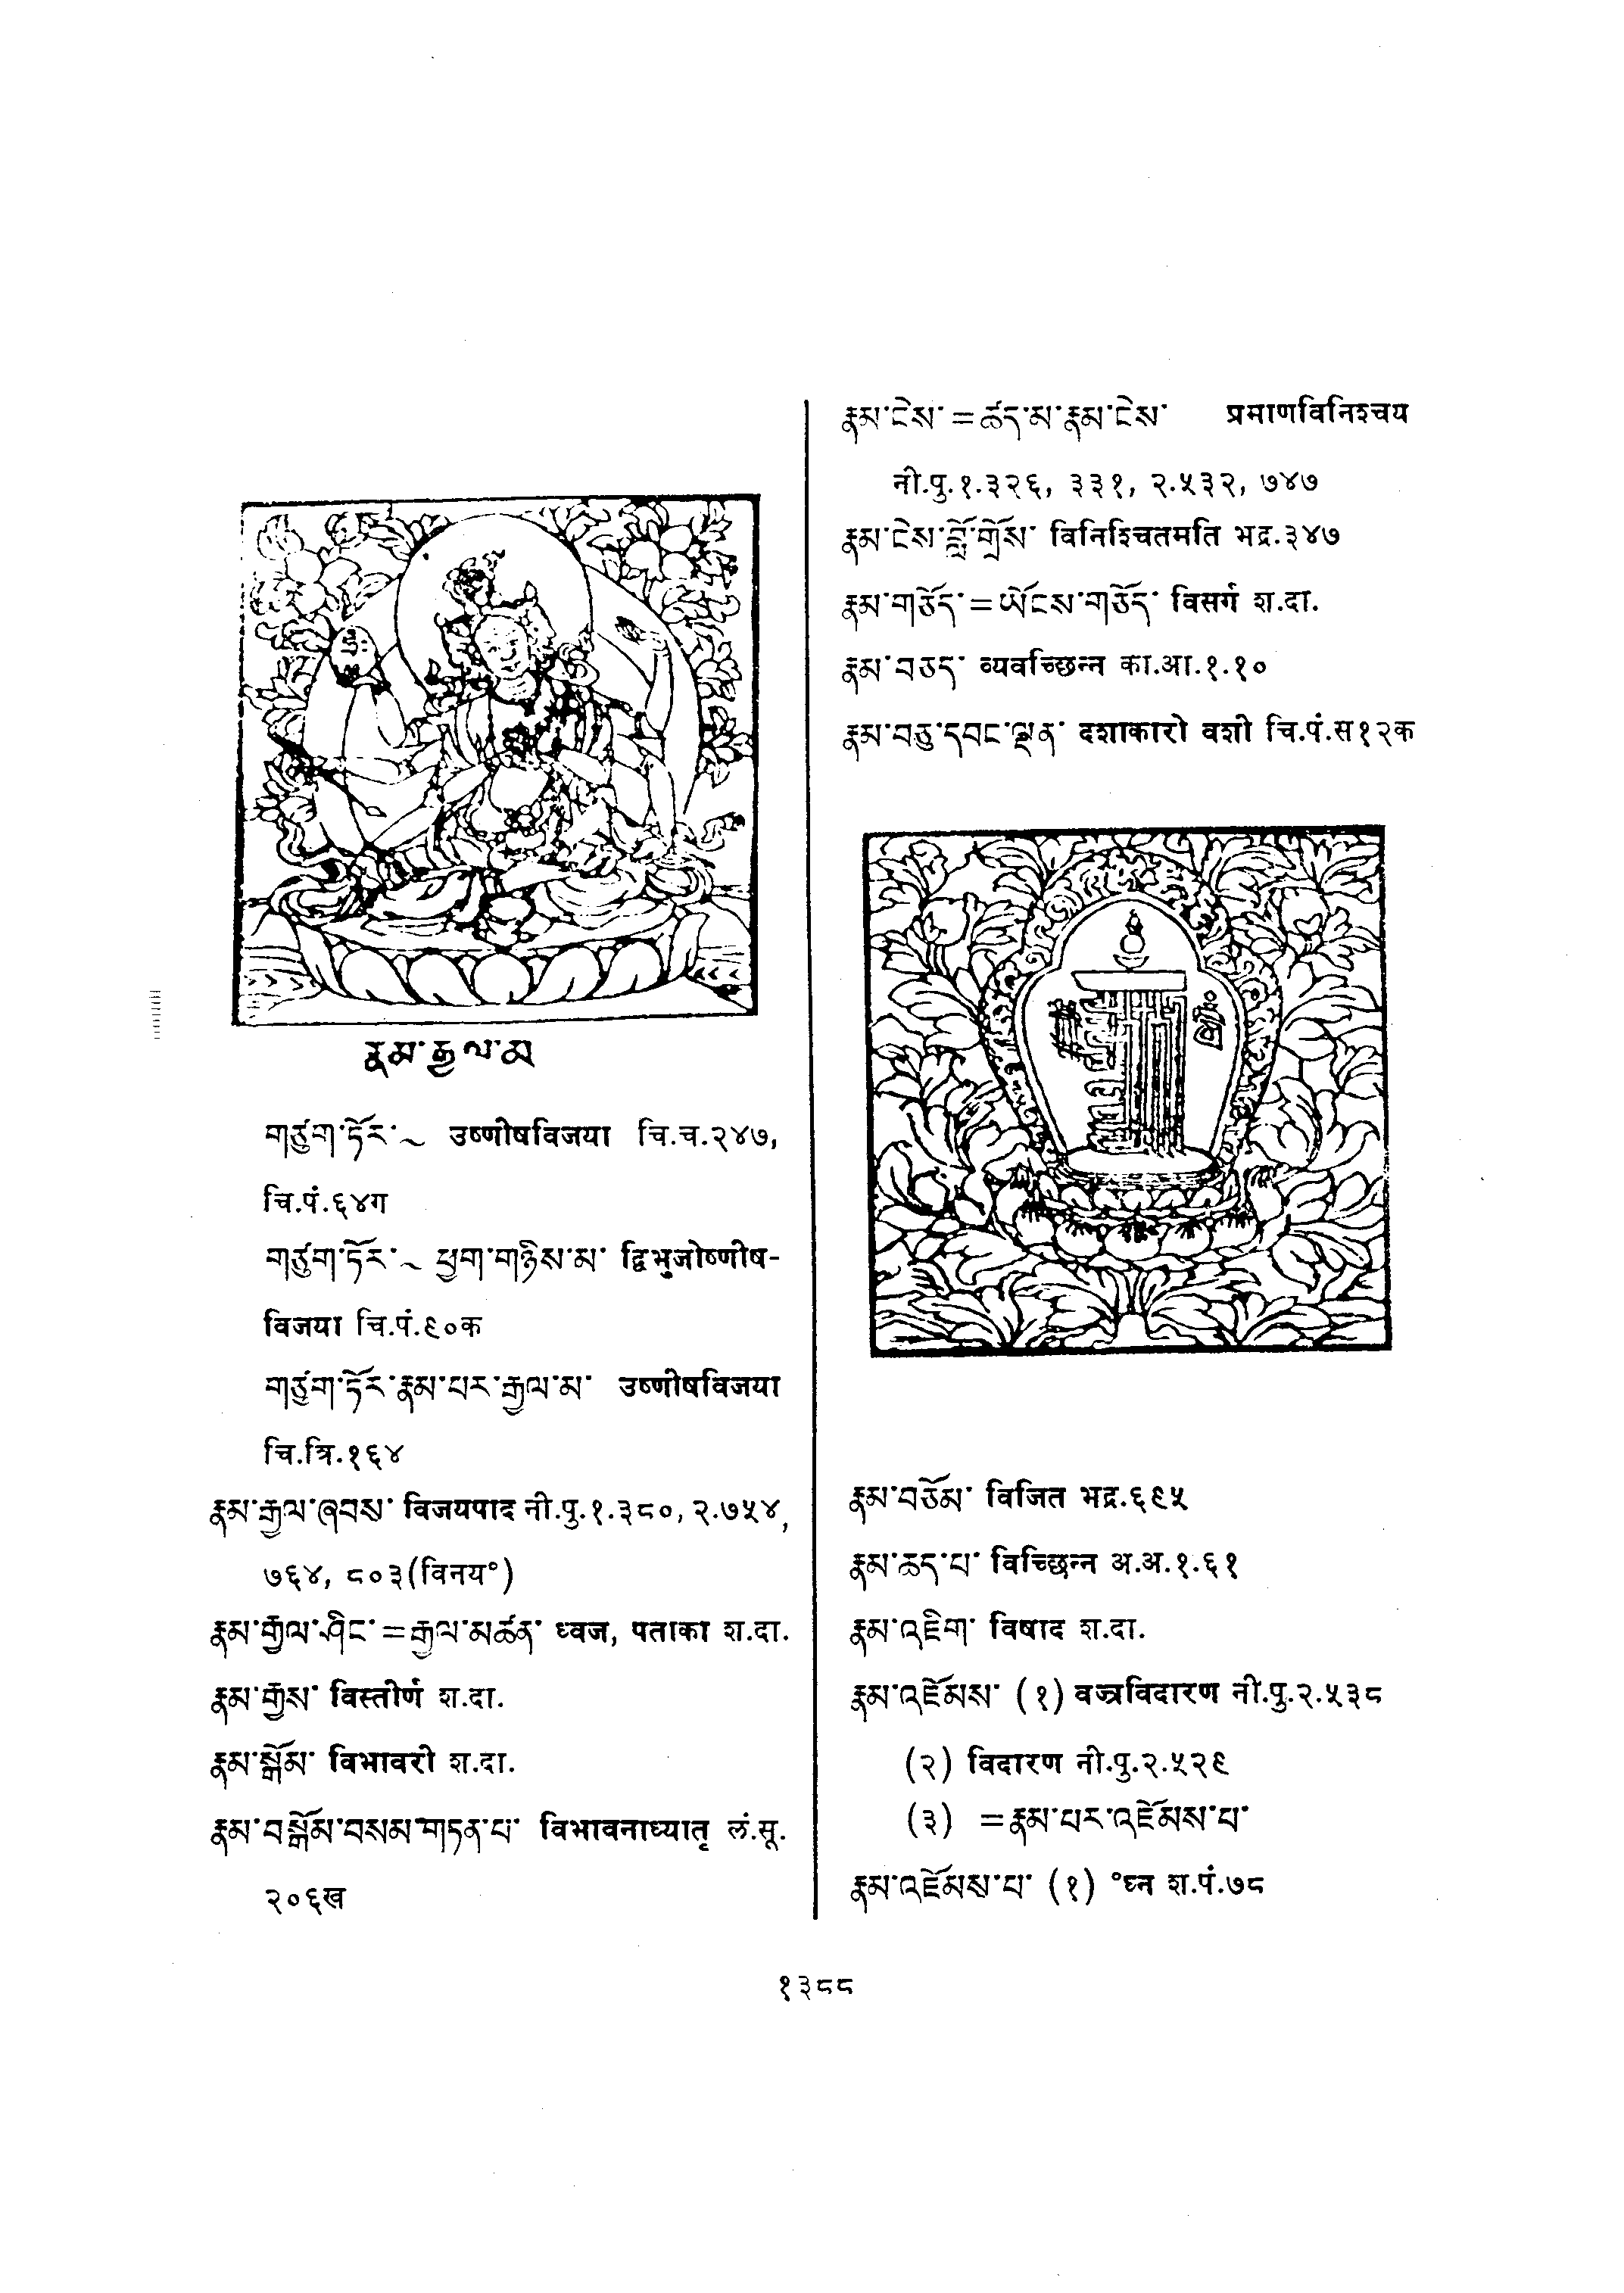 རྣམ་རྒྱལ་མ
གཙུག་ཏོར་~ उष्णीषविजया चि.च.२४७,
चि.पं.६४ग
གཙུག་ཏོར་~ ཕྱག་གཉིས་མ་ द्विभुजोष्णीष-
विजया चि.पं.९०क
གཙུག་ཏོར་རྣམ་པར་རྒྱལ་མ་ उष्णीषविजया
चि.त्रि.१६४
རྣམ་རྒྱལ་ཞབས་ विजयपाद नी.पु.१.३८०, २.७५४,
७६४, ८०३(विनय°)
རྣམ་རྒྱལ་ཤིང་=རྒྱལ་མཚན་ ध्वज, पताका श.दा.
རྣམ་རྒྱས་ विस्तीर्ण श.दा.
རྣམ་སྒོམ་ विभावरी श.दा.
རྣམ་བསྒོམ་བསམ་གཏན་པ་ विभावनाध्यातृ लं.सू.
२०६ख
རྣམ་ངེས་=ཚད་མ་རྣམ་ངེས་ प्रमाणविनिश्चय
नी.पु.१.३२६, ३३१, २.५३२, ७४७
རྣམ་ངེས་བློ་གྲོས་ विनिश्चितमति भद्र.३४७
རྣམ་གཅོད་=ཡོངས་གཅོད་ विसर्ग श.दा.
རྣམ་བཅད་ व्यवच्छिन्न का.आ.१.१०
རྣམ་བཅུ་དབང་ལྡན་ दशाकारो वशी चि.पं.स१२क
རྣམ་བཅོམ་ विजित भद्र.६९५
རྣམ་ཆད་པ་ विच्छिन्न अ.अ.१.६१
རྣམ་འཇིག་ विषाद श.दा.
རྣམ་འཇོམས་ (१) वज्रविदारण नी.पु.२.५३८
(२) विदारण नी.पु.२.५२९
(३) =རྣམ་པར་འཇོམས་པ་
རྣམ་འཇོམས་པ་ (१) °घ्न श.पं.७८
१३८८